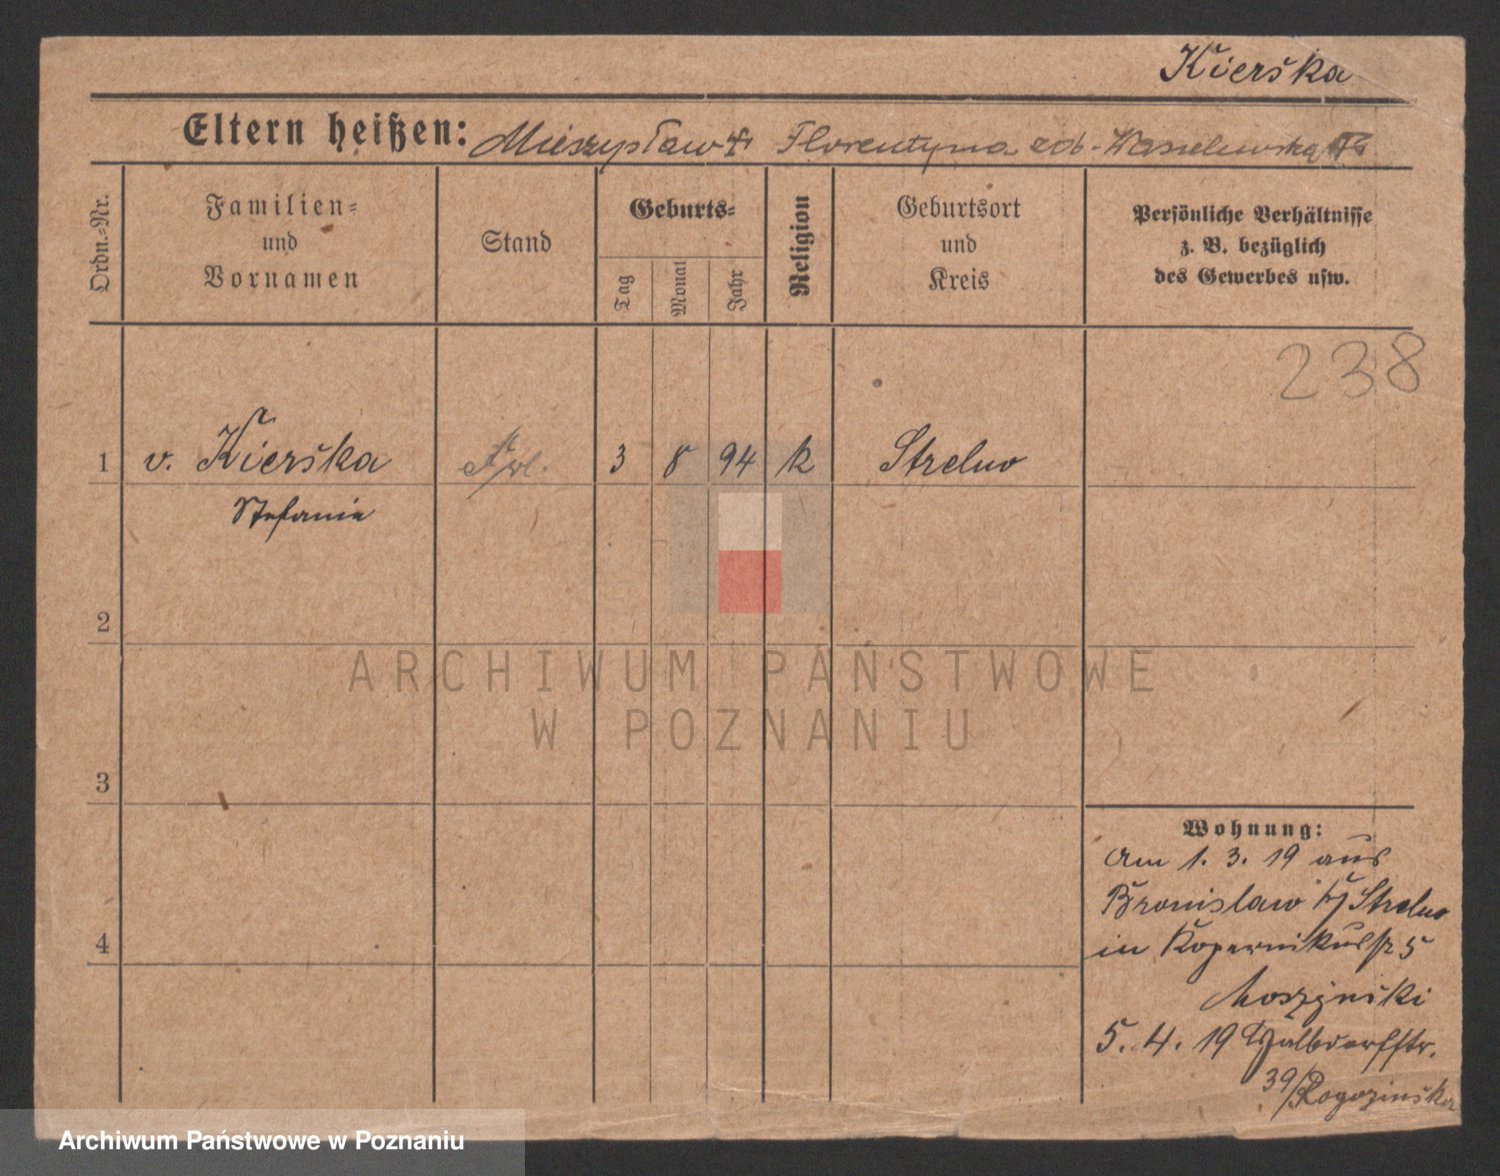 Kierśka
Eltern heißen: Mieczysław + Florentyna
Ordn.=Nr.
Familien=
und
Vornamen
Stand
Geburts=
Tag
Monat
Jahr
Religion
Geburtsort
und
Kreis
Persönliche Verhältnisse
z. B. bezüglich
des Gewerbes usw.
238
1 v. Kierśka 3 8 94 k Strelno
Stefanie
2
ARCHIWUM PAŃSTWOWE
W POZNANIU
3
Wohnung:
Am 1. 3. 19 aus
Bronislaw Strelno
4
in Kopernikusstr 5
Moszyński
5. 4. 19 Halbdorfstr.
39/Rogozinśka
Archiwum Państwowe w Poznaniu